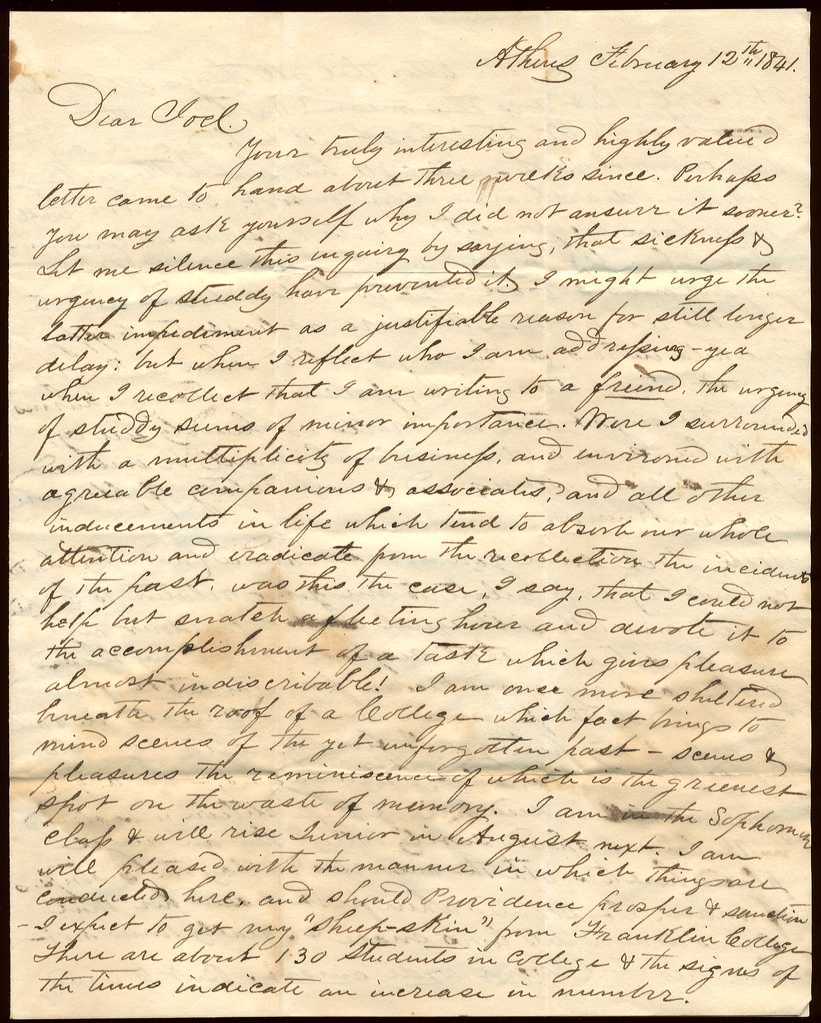 Athens February 12th 1841.
Dear Joel.
Your truly interesting and highly valued
letter came to hand about three weeks since. Perhaps
you may ask yourself why I did not answer it sooner?
Let me silence this inquiry by saying, that sickness &
urgency of studdy have prevented it. I might urge the
latter impediment as a justifiable reason for still longer
delay: but when I reflect who I am addressing - yea
when I recollect that I am writing to a freind, the urgency
of studdy seems of minor importance. Were I surrounded
with a multiplicity of business, and environed with
agreeable companions & associates, and all other
inducements in life which tend to absorb our whole
attention and eradicate from the recollection the incidents
of the past, was this the case, I say, that I could not
help but snatch a fleeting hour and devote it to
the accomplishment of a task which gives pleasure
almost indiscribable! I am once more sheltered
beneath the roof of a College which fact brings to
mind scenes of the yet unforgotten past - scenes &
pleasures the reminiscence of which is the greenest
spot on the waste of memory. I am in the Sophomore
class & will rise Junior in August next I am
well pleased with the manner in which things are
conducted here, and should Providence prosper & sanction
- I expect to get my "sheep-skin" from Franklin College
There are about 130 Students in College & the signs of
the times indicate an increase in number.